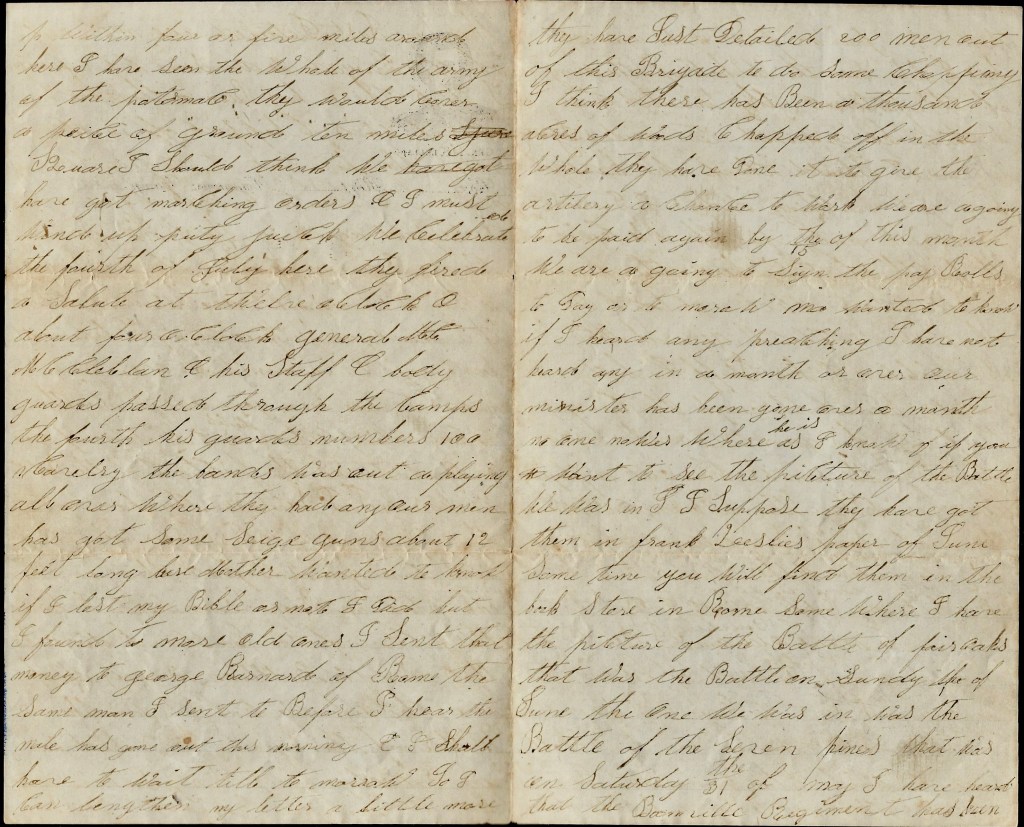 up within four or five miles around
here I have seen the whole of the army
of the potomac. they would cover
a peice of ground ten miles
Square I Should think We have got
have got marching orders & I must
wind up prity quick We Celebrated
the fourth of July here they fired
a Salute at twelve oclock &
about four oclock general Mc
McClellan & his Staff & body
guards passed through the Camps
the fourth his guards numbers 100
Cavelry the bands was out a playing
all over Where they had any our men
has got some Seige guns about 12
feet long here Mother wanted to know
if I lost my Bible or not I Did but
I found to more old ones I Sent that
money to george Barnard of Rome the
Same man I sent to Before I hear the
male has gone out this morning & I Shall
have to wait till to morrow So I
Can lengthen my letter a little more
they have Just Detailed 200 men out
of this Brigade to do some Chopping
I think there has Been a thousand
acres of woods Chopped off in the
Whole they have Done it to give the
artilery a Chance to work We are a going
to be paid again by the 15 of this month
We are a going to Sign the pay Rolls
to Day or to morow Mo wanted to know
if I heard any preaching I have not
heard any in a month or over our
minister has been gone over a month
no one knows Where he is as I know of if you
want to see the picture of the Battle
We was in I Suppose they have got
them in frank Leeslies paper of June
Some time you Will find them in the
book Store in Rome Some Where I have
the picture of the Battle of fairoaks
that was the Battle on Sunday the of
June the one We Was in was the
Battle of the Seven pines that was
on Saturday the 31 of may I have heard
that the Bonville Regiment has been